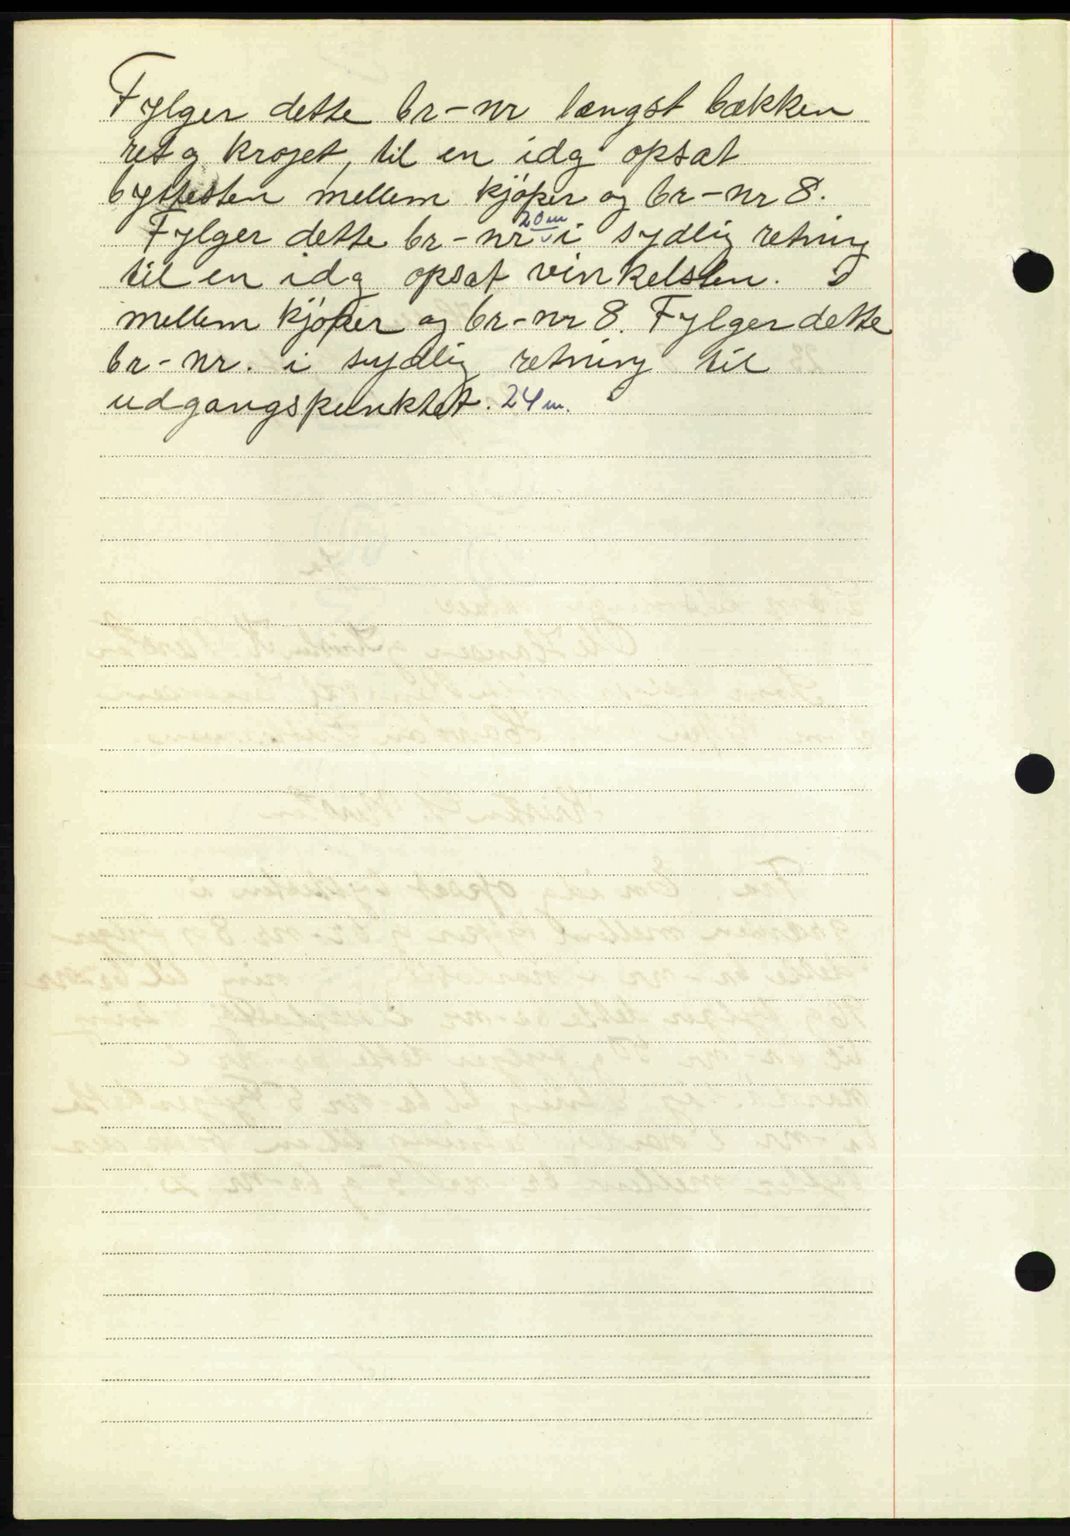 Fylger dette br-nr længst bækken
ret og krojet, til en idg opsat
byttesten mellem kjøper og br-nr 8.
Fylger dette br-nr 20 m i sydlig retning
til en idg opsat vinkelsten. I
mellem kjøper og br-nr 8. Fylger dette
br-nr. i sydlig retning til
udgangspunktet. 24 m.